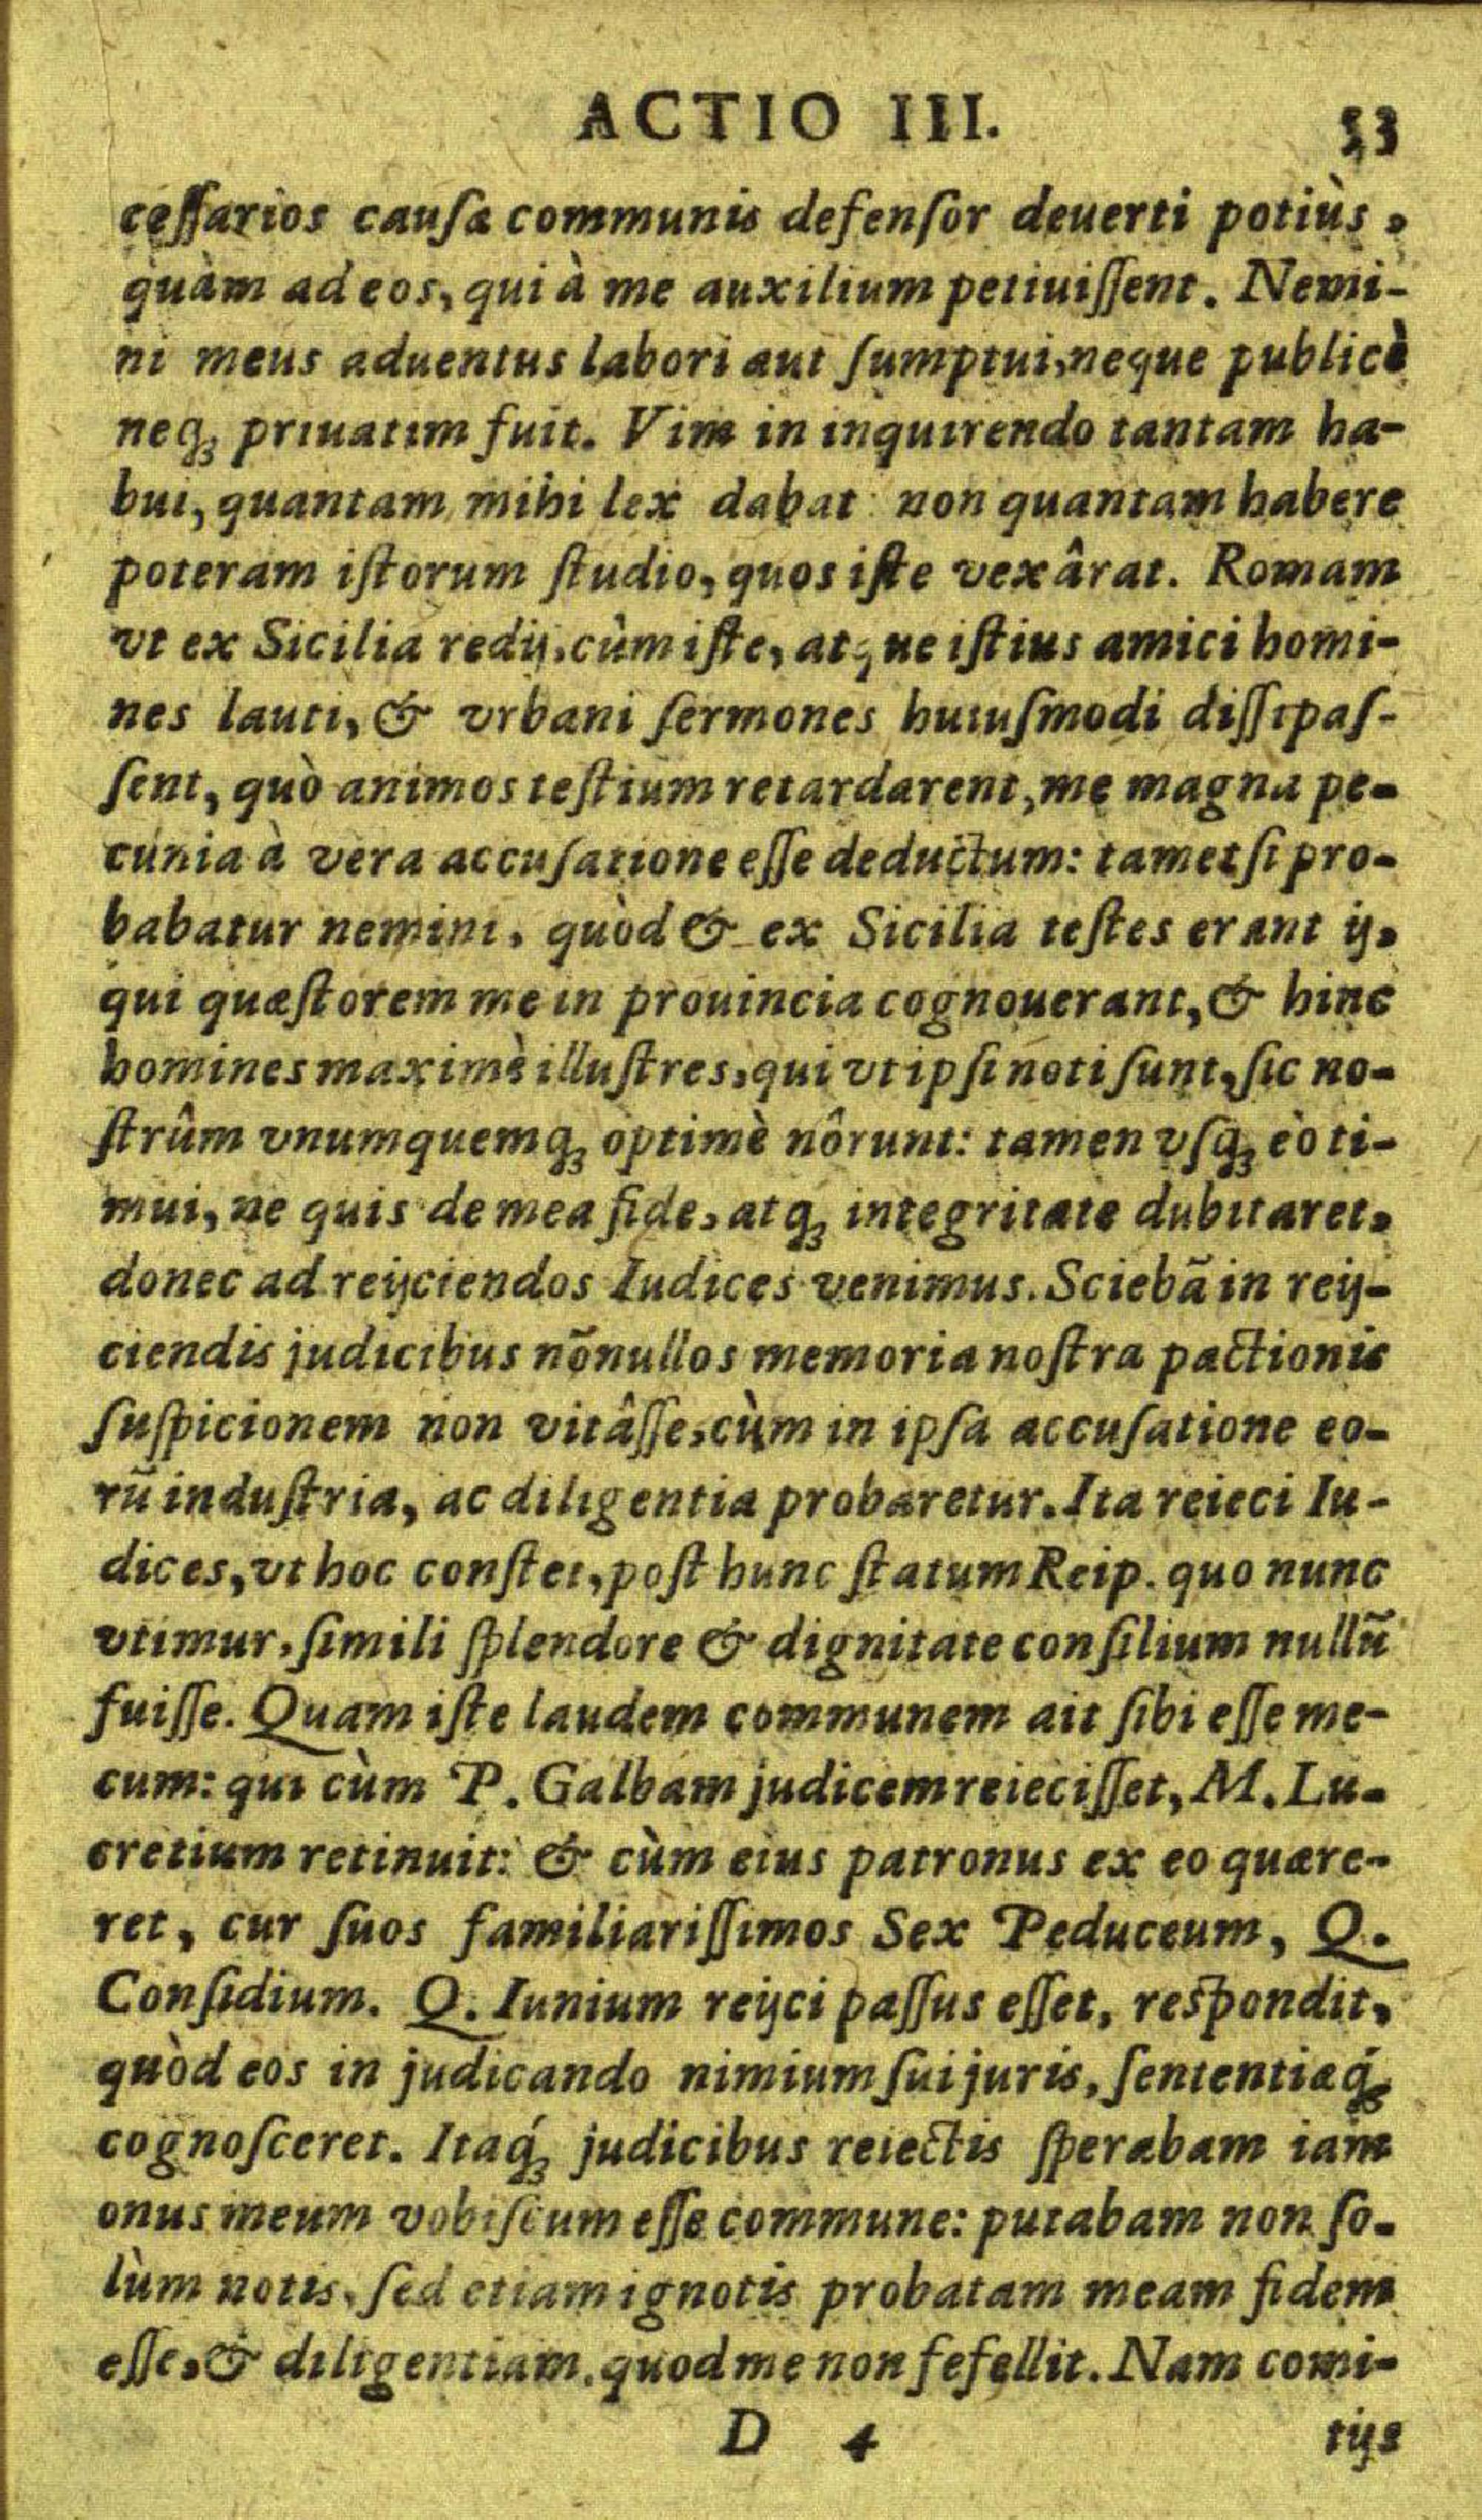 ACTIO III. 53
ceſſarios cauſa communis defenſor deuerti potiùs,
quàm ad eos, qui à me auxilium petiuiſſent. Nemi-
ni meus aduentus labori aut ſumptui, neque publicè
neq; priuatim fuit. Vim in inquirendo tantam ha-
bui, quantam mihi lex dabat non quantam habere
poteram iſtorum ſtudio, quos iſte vexârat. Romam
vt ex Sicilia redij, cùm iſte, atque iſtius amici homi-
nes lauti, & vrbani ſermones huiuſmodi diſſipaſ-
ſent, quò animos teſtium retardarent, me magna pe-
cunia à vera accuſatione eſſe deductum: tametſi pro-
babatur nemini, quòd & ex Sicilia teſtes erant ij,
qui quæſtorem me in prouincia cognouerant, & hinc
homines maximè illuſtres, qui vt ipſi noti ſunt, ſic no-
ſtrûm vnumquemq; optimè nôrunt: tamen vſq; eò ti-
mui, ne quis de mea fide, atq; integritate dubitaret,
donec ad reijciendos Iudices venimus. Sciebã in reij-
ciendis judicibus nõnullos memoria noſtra pactionis
ſuſpicionem non vitâſſe, cùm in ipſa accuſatione eo-
rũ induſtria, ac diligentia probaretur. Ita reieci Iu-
dices, vt hoc conſtet, poſt hunc ſtatum Reip. quo nunc
vtimur, ſimili ſplendore & dignitate conſilium nullũ
fuiſſe. Quam iſte laudem communem ait ſibi eſſe me-
cum: qui cùm P. Galbam judicem reieciſſet, M. Lu-
cretium retinuit: & cùm eius patronus ex eo quære-
ret, cur ſuos familiariſſimos Sex Peduceum, Q.
Conſidium. Q. Iunium reijci paſſus eſſet, reſpondit,
quòd eos in judicando nimium ſui juris, ſententiæq́;
cognoſceret. Itaq́; judicibus reiectis ſperabam iam
onus meum vobiſcum eſſe commune: putabam non ſo-
lùm notis, ſed etiam ignotis probatam meam fidem
eſſe, & diligentiam. quod me non fefellit. Nam comi-
D 4 tijs